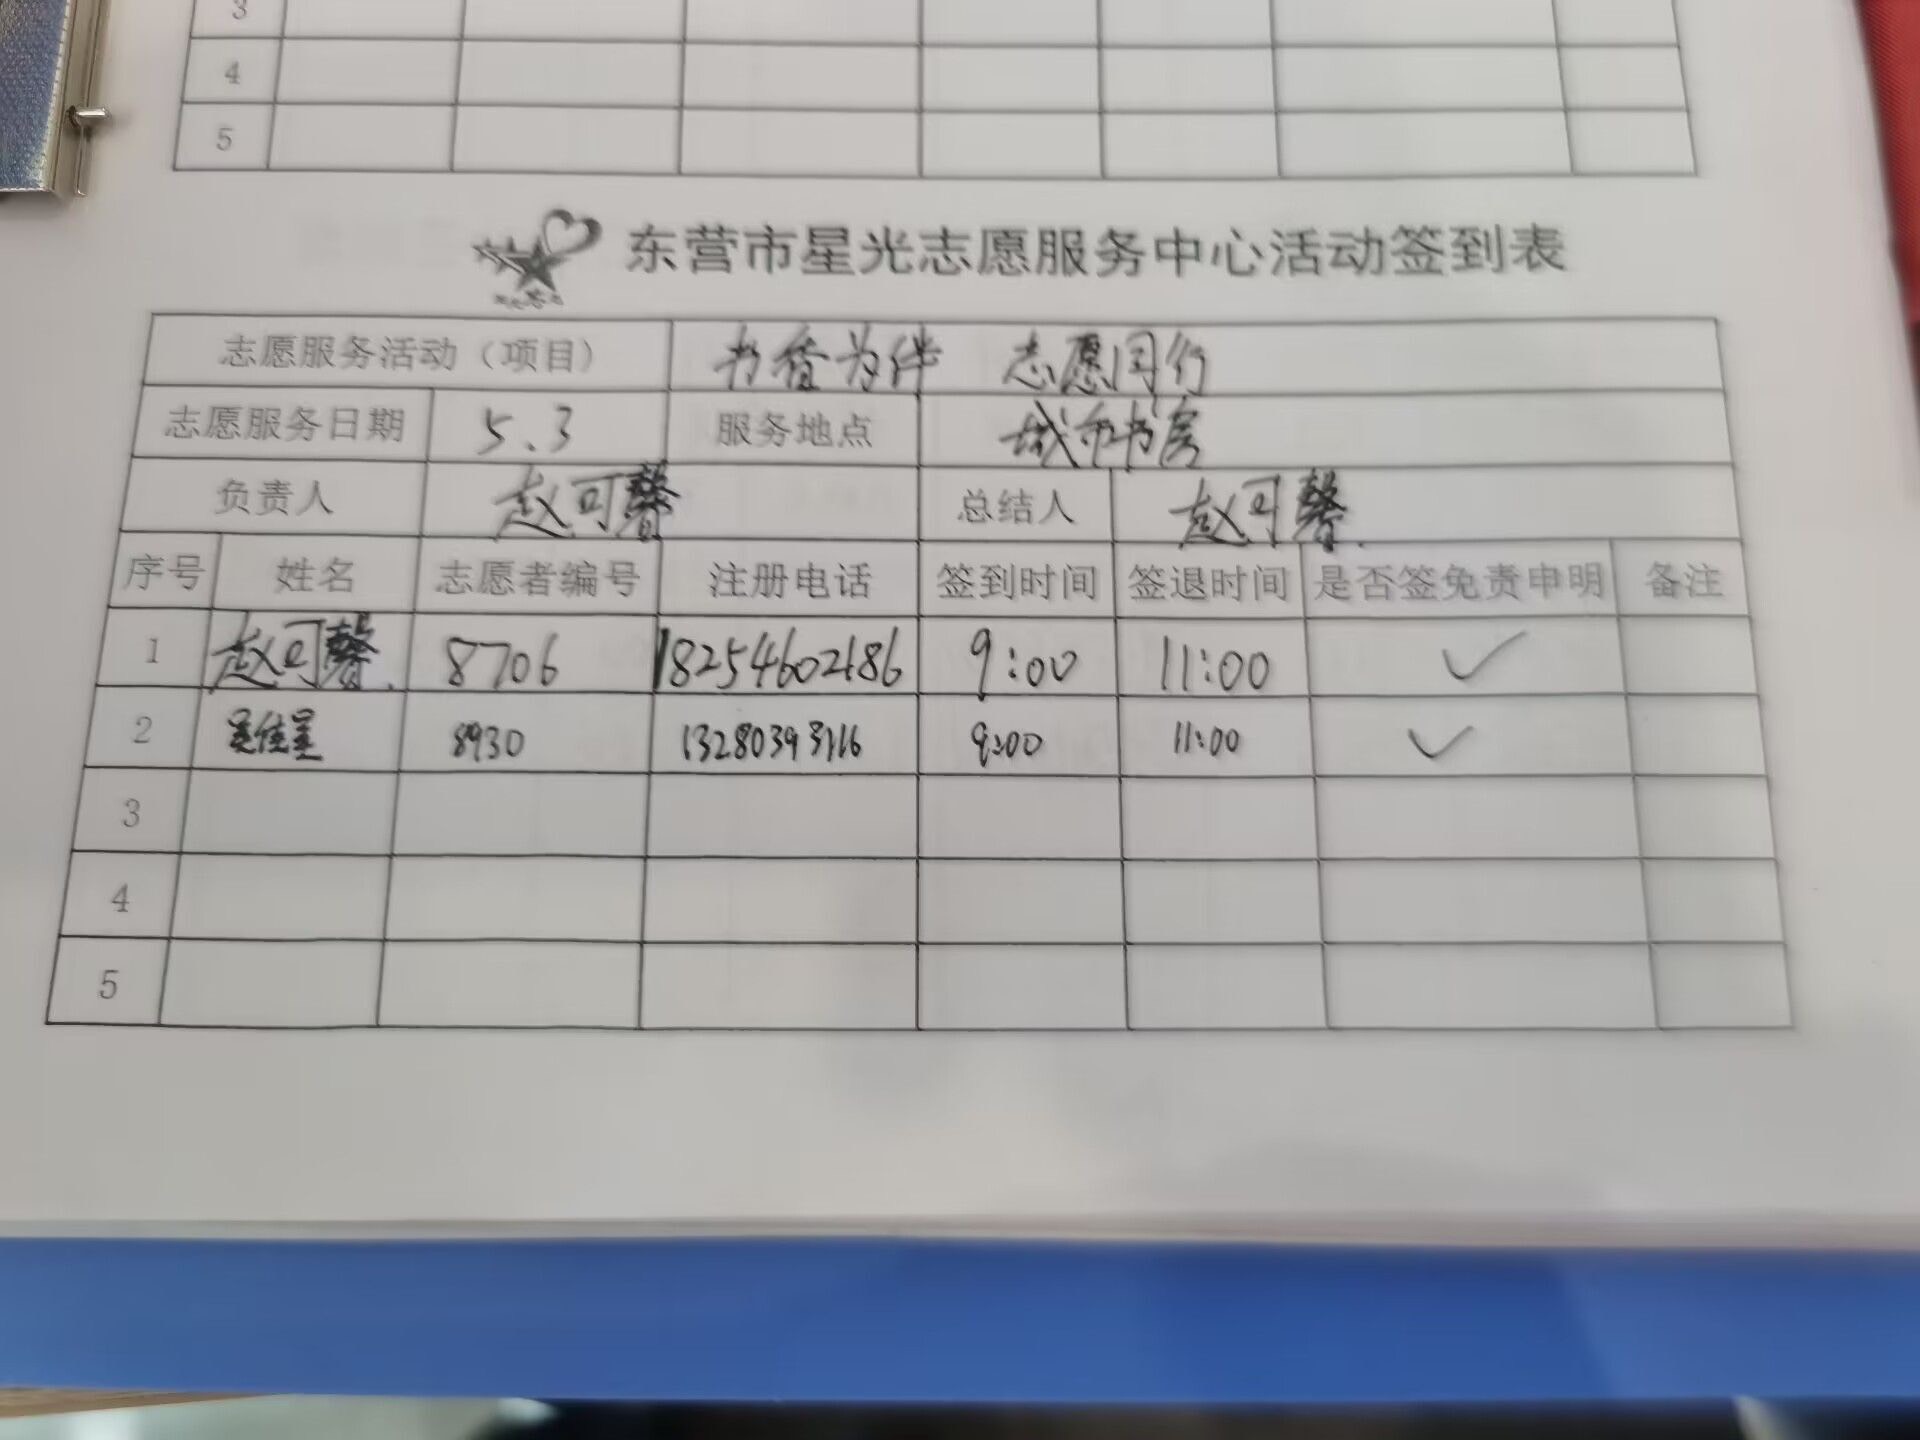 3
4
5
东营市星光志愿服务中心活动签到表
志愿服务活动（项目） 书香为伴 志愿同行
志愿服务日期 5.3 服务地点 城市书房
负责人 赵可馨 总结人 赵可馨
序号 姓名 志愿者编号 注册电话 签到时间 签退时间 是否签免责申明 备注
1 赵可馨 8706 18254602186 9:00 11:00 ✓
2 8930 13280393116 9:00 11:00 ✓
3
4
5